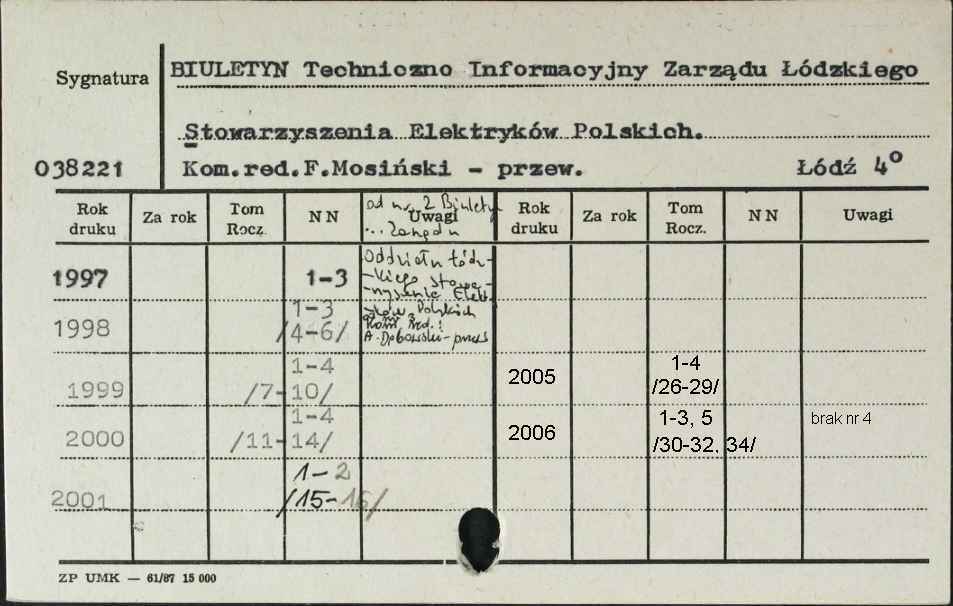 BIULETYN Techniczno Informacyjny Zarządu Łódzkiego
Sygnatura
Stowarzyszenia Elektryków Polskich.
038221 Kom.red.F.Mosiński - przew. Łódź 4°
Rok druku Za rok Tom Rocz. NN Uwagi Rok druku Za rok Tom Rocz. NN Uwagi
od nr 2 Biuletyn
... Zarządu
Oddziału Łódz-
-kiego Stowa-
1997 1-3
-rzyszenia Elekt
1-3
Polskich
1998 /4-6/
Kom. red.:
A. Dębowski-przew
1-4 1-4
1999 /7-10/ 2005 /26-29/
1-4 1-3, 5 brak nr 4
2000 /11-14/ 2006 /30-32, 34/
1-2
2001 /15-16/
ZP UMK — 61/87 15 000